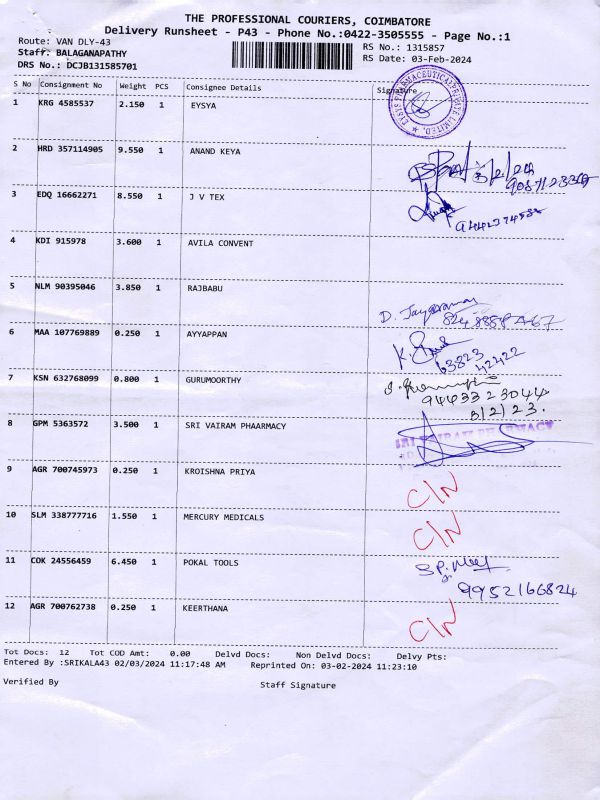 THE PROFESSIONAL COURIERS, COIMBATORE
Delivery Runsheet - P43 - Phone No.:0422-3505555 - Page No.:1
Route: VAN DLY-43
RS No.: 1315857
Staff: BALAGANAPATHY
RS Date: 03-Feb-2024
DRS No.: DCJB131585701
S No Consignment No Weight PCS Consignee Details Signature
1 KRG 4585537 2.150 1 EYSYA
2 HRD 357114905 9.550 1 ANAND KEYA
3/2/24
3 EDQ 16662271 8.550 1 J V TEX
4 KDI 915978 3.600 1 AVILA CONVENT
5 NLM 90395046 3.850 1 RAJBABU
D. Jayaraman
6 MAA 107769889 0.250 1 AYYAPPAN
63823
42422
7 KSN 632768099 0.800 1 GURUMOORTHY
9443323044
3/2/23.
8 GPM 5363572 3.500 1 SRI VAIRAM PHAARMACY
SRI VAIRAM PHARMACY
9 AGR 700745973 0.250 1 KROISHNA PRIYA
C/N
10 SLM 338777716 1.550 1 MERCURY MEDICALS
C/N
11 COK 24556459 6.450 1 POKAL TOOLS
9952166824
12 AGR 700762738 0.250 1 KEERTHANA
C/N
Tot Docs: 12 Tot COD Amt: 0.00 Delvd Docs: Non Delvd Docs: Delvy Pts:
Entered By :SRIKALA43 02/03/2024 11:17:48 AM Reprinted On: 03-02-2024 11:23:10
Verified By Staff Signature